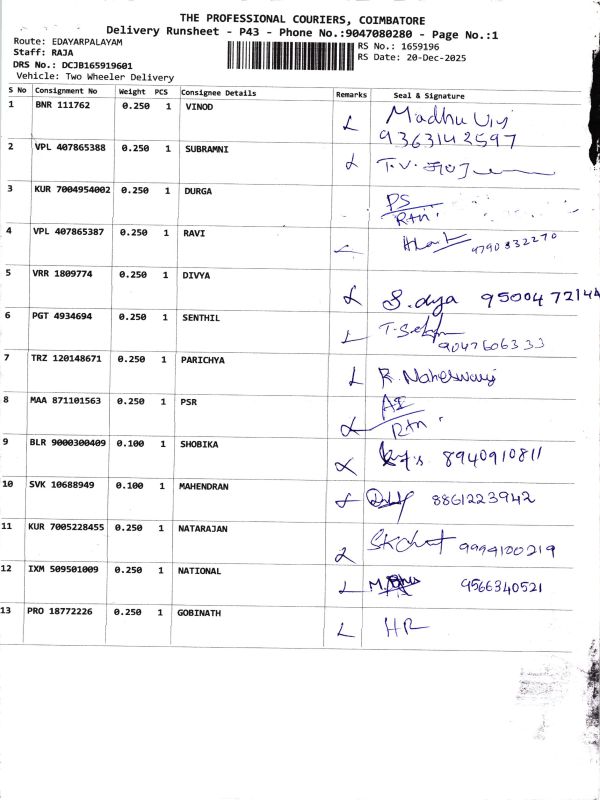 THE PROFESSIONAL COURIERS, COIMBATORE
Delivery Runsheet - P43 - Phone No.:9047080280 - Page No.:1
Route: EDAYARPALAYAM
RS No.: 1659196
Staff: RAJA
RS Date: 20-Dec-2025
DRS No.: DCJB165919601
Vehicle: Two Wheeler Delivery
S No Consignment No Weight PCS Consignee Details Remarks Seal & Signature
1 BNR 111762 0.250 1 VINOD L Madhu
9363142597
2 VPL 407865388 0.250 1 SUBRAMNI T.V.
3 KUR 7004954002 0.250 1 DURGA PS
Rtn.
4 VPL 407865387 0.250 1 RAVI 4790832270
5 VRR 1809774 0.250 1 DIVYA L S.dya 9500472144
6 PGT 4934694 0.250 1 SENTHIL L
9047606333
7 TRZ 120148671 0.250 1 PARICHYA L R. Maheswari
8 MAA 871101563 0.250 1 PSR AI
Rtn.
9 BLR 9000300409 0.100 1 SHOBIKA 8940910811
10 SVK 10688949 0.100 1 MAHENDRAN 8861223942
11 KUR 7005228455 0.250 1 NATARAJAN 9994100219
12 IXM 509501009 0.250 1 NATIONAL L 9566340521
13 PRO 18772226 0.250 1 GOBINATH L HR